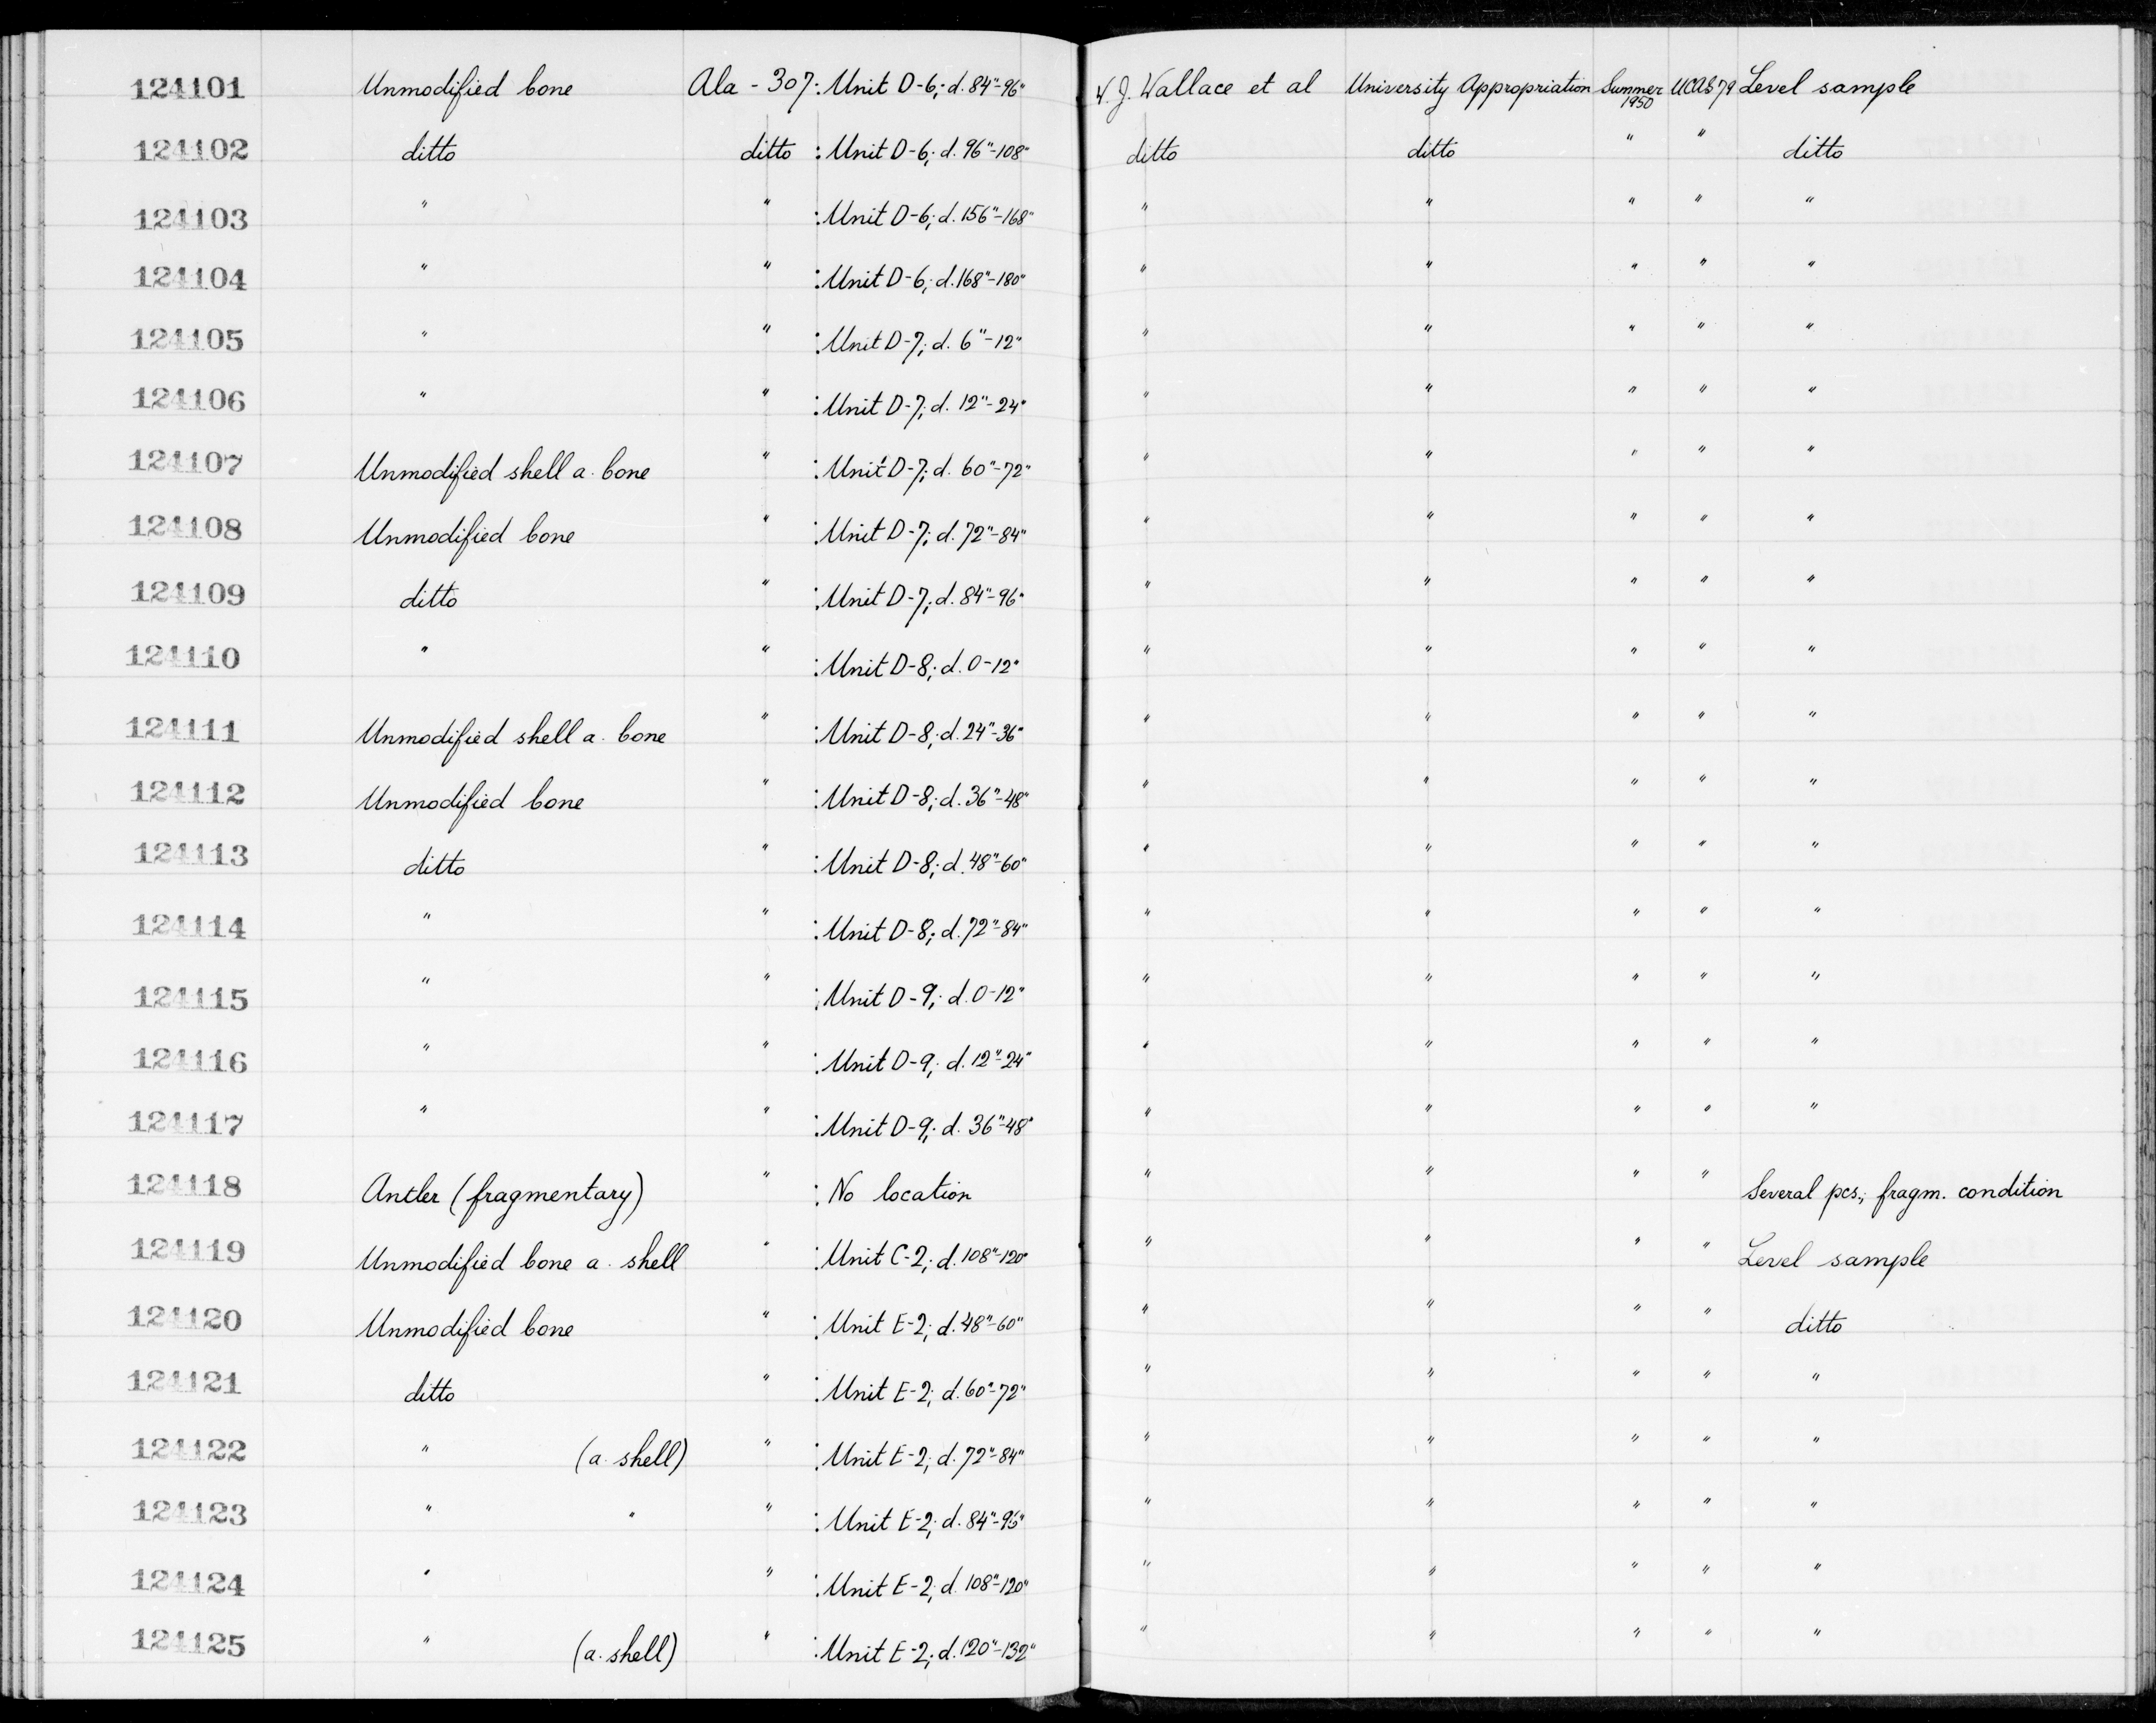 124101 Unmodified bone Ala - 307: Unit D-6; d. 84"-96" W. J. Wallace et al University Appropriation Summer 1950 UCAS 79 Level sample
124102 ditto ditto : Unit D-6; d. 96"-108" ditto ditto " " ditto
124103 " " : Unit D-6; d. 156"-168" " " " " "
124104 " " : Unit D-6; d. 168"-180" " " " " "
124105 " " : Unit D-7; d. 6"-12" " " " " "
124106 " " : Unit D-7; d. 12"-24" " " " " "
124107 Unmodified shell a. bone " : Unit D-7; d. 60"-72" " " " " "
124108 Unmodified bone " : Unit D-7; d. 72"-84" " " " " "
124109 ditto " : Unit D-7; d. 84"-96" " " " " "
124110 " " : Unit D-8; d. 0-12" " " " " "
124111 Unmodified shell a. bone " : Unit D-8; d. 24"-36" " " " " "
124112 Unmodified bone " : Unit D-8; d. 36"-48" " " " " "
124113 ditto " : Unit D-8; d. 48"-60" " " " " "
124114 " " : Unit D-8; d. 72"-84" " " " " "
124115 " " : Unit D-9; d. 0-12" " " " " "
124116 " " : Unit D-9; d. 12"-24" " " " " "
124117 " " : Unit D-9; d. 36"-48" " " " " "
124118 Antler (fragmentary) " : No location " " " " Several pcs.; fragm. condition
124119 Unmodified bone a. shell " : Unit C-2; d. 108"-120" " " " " Level sample
124120 Unmodified bone " : Unit E-2; d. 48"-60" " " " " ditto
124121 ditto " : Unit E-2; d. 60"-72" " " " " "
124122 " (a. shell) " : Unit E-2; d. 72"-84" " " " " "
124123 " " " : Unit E-2; d. 84"-96" " " " " "
124124 " " : Unit E-2; d. 108"-120" " " " " "
124125 " (a. shell) " : Unit E-2; d. 120"-132" " " " " "